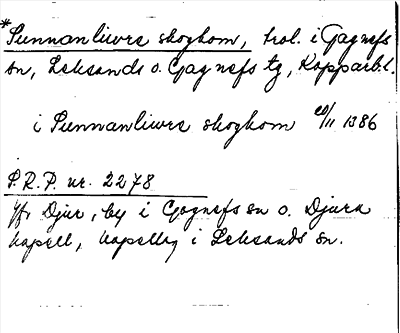 *Sunnanliwrs skoghom, trol. i Gagnefs
sn, Leksands o. Gagnefs tg, Kopparb. l.
i Sunnanliwrs skoghom 20/11 1386
S.R.P. nr. 2278
Jfr Djur, by i Gagnefs sn o. Djura
kapell, kapellag i Leksands sn.